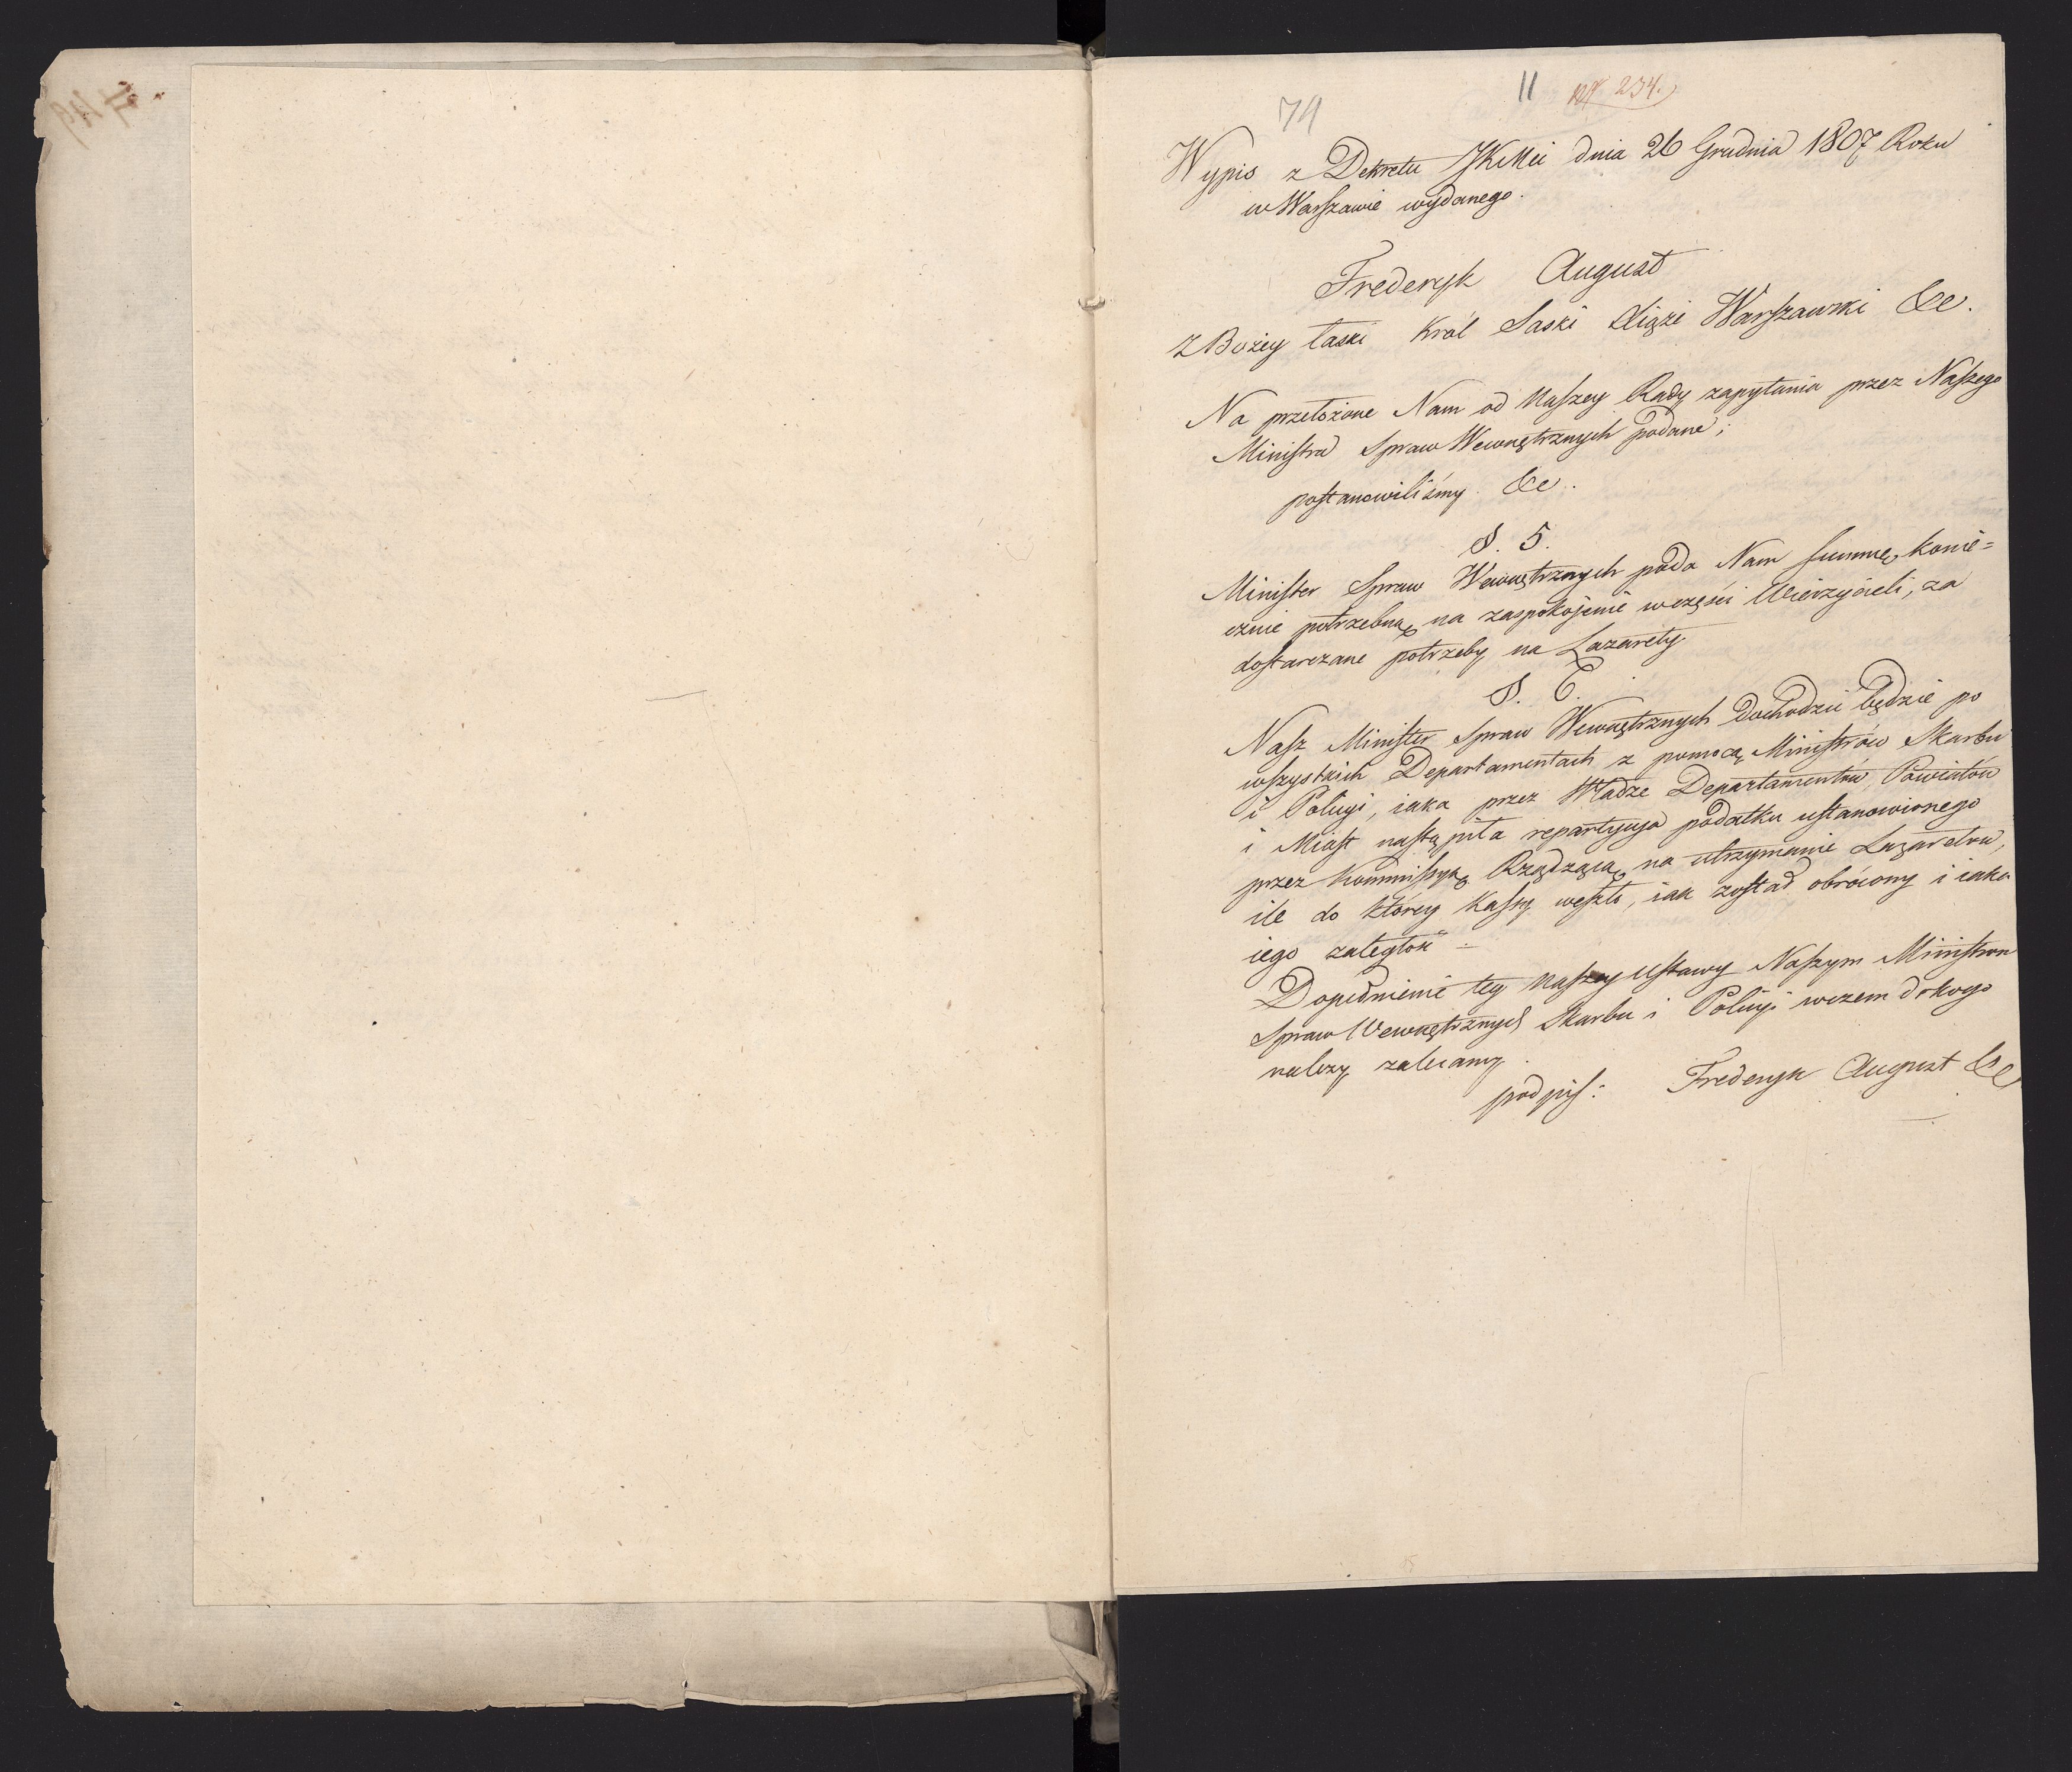 74
11
234.
Wypis z Dekretu JKMci dnia 26 Grudnia 1807 Roku
w Warszawie wydanego.
Frederyk August
Z Bożey łaski Król Saski Xiąże Warszawski &c.
Na przełożone Nam od Naszey Rady zapytania przez Naszego
Ministra Spraw Wewnętrznych podane;
postanowiliśmy &c.
§. 5.
Minister Spraw Wewnętrznych poda Nam summę konie=
cznie potrzebną na zaspokojenie w części Wierzycieli, za
dostarczane potrzeby na Lazarety.
§. 6.
Nasz Minister Spraw Wewnętrznych dochodzić będzie po
wszystkich Departamentach z pomocą Ministrów Skarbu
i Policyi, iaka przez Władze Departamentów, Powiatów
i Miast nastąpiła repartycya podatku ustanowionego
przez Kommissyą Rządzącą na utrzymanie Lazaretów,
ile do którey Kassy weszło, iak został obrócony i iaka
iego zaległość.
Dopełnienie tey Naszey Ustawy Naszym Ministrom
Spraw Wewnętrznych Skarbu i Policyi w czem do kogo
należy zalecamy.
podpis: Frederyk August &c